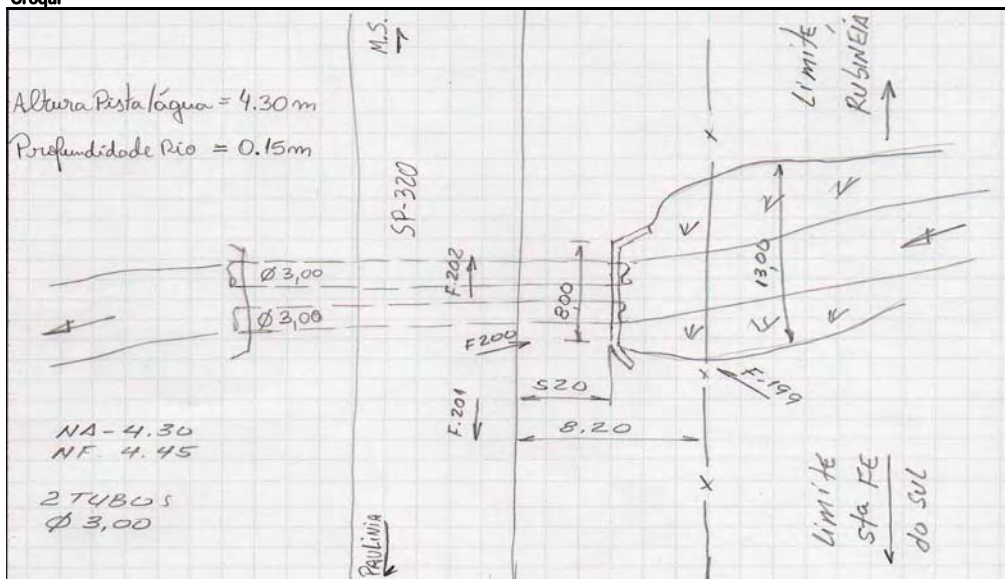 Croqui
Altura Pista/água = 4.30 m
Profundidade Rio = 0.15m
M.S.
SP-320
Limite
RUBINEIA
Ø 3,00
Ø 3,00
F.202
800
13,00
F200
F.201
520
8.20
F-199
NA-4.30
NF. 4.45
2 TUBOS
Ø 3,00
PAULINIA
Limite
sta FE
do SUL